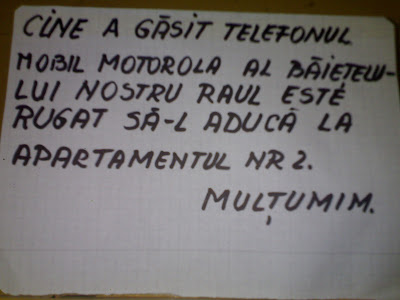 CINE A GĂSIT TELEFONUL
MOBIL MOTOROLA AL BĂIEȚELU-
LUI NOSTRU RAUL ESTE
RUGAT SĂ-L ADUCĂ LA
APARTAMENTUL NR 2.
MULȚUMIM.